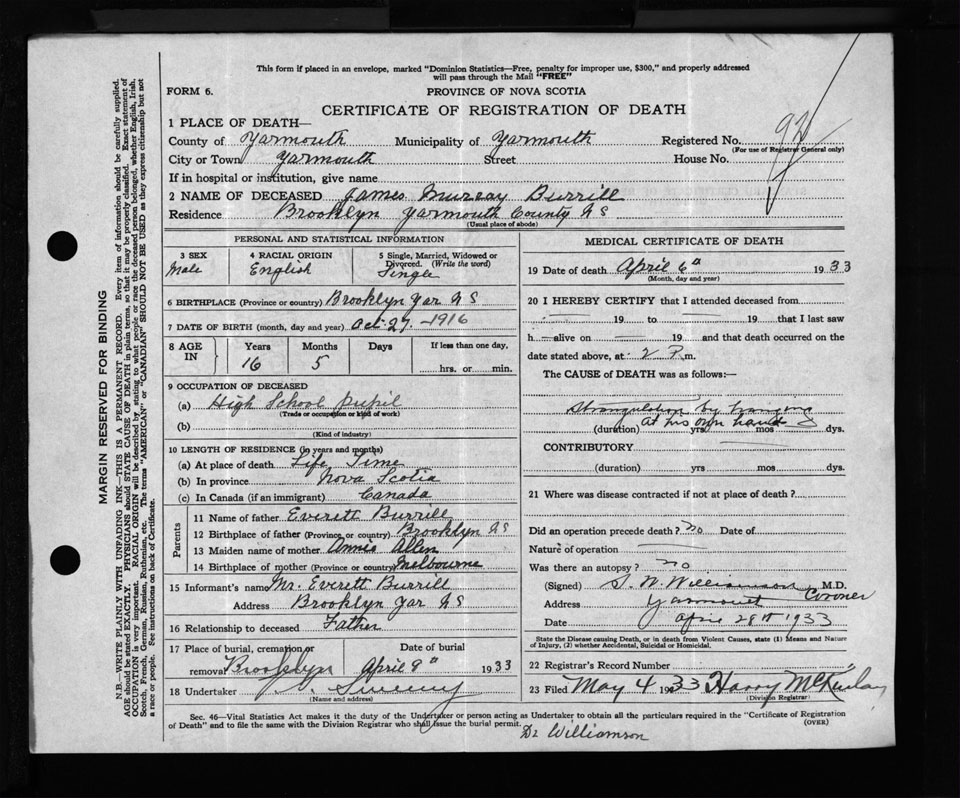 This form if placed in an envelope, marked "Dominion Statistics—Free, penalty for improper use, $300," and properly addressed
will pass through the Mail "FREE"
FORM 6.
PROVINCE OF NOVA SCOTIA
CERTIFICATE OF REGISTRATION OF DEATH
1 PLACE OF DEATH—
County of Yarmouth Municipality of Yarmouth Registered No.
(For use of Registrar General only)
City or Town Yarmouth Street House No.
If in hospital or institution, give name
2 NAME OF DECEASED James Murray Burrill
Residence Brooklyn Yarmouth County NS
(Usual place of abode)
PERSONAL AND STATISTICAL INFORMATION
3 SEX Male
4 RACIAL ORIGIN English
5 Single, Married, Widowed or Divorced. (Write the word) Single
6 BIRTHPLACE (Province or country) Brooklyn Yar NS
7 DATE OF BIRTH (month, day and year) Oct. 27 - 1916
8 AGE IN Years 16 Months 5 Days If less than one day, hrs. or min.
9 OCCUPATION OF DECEASED
(a) High School pupil
(Trade or occupation or kind of work)
(b)
(Kind of industry)
10 LENGTH OF RESIDENCE (in years and months)
(a) At place of death Life Time
(b) In province Nova Scotia
(c) In Canada (if an immigrant) Canada
Parents
11 Name of father Everett Burrill
12 Birthplace of father (Province or country) Brooklyn NS
13 Maiden name of mother Annie Allen
14 Birthplace of mother (Province or country) Melbourne
15 Informant's name Mr. Everett Burrill
Address Brooklyn Yar NS
16 Relationship to deceased Father
17 Place of burial, cremation or removal Brooklyn
Date of burial April 8th 1933
18 Undertaker Sweeny
(Name and address)
MEDICAL CERTIFICATE OF DEATH
19 Date of death April 6th 1933
(Month, day and year)
20 I HEREBY CERTIFY that I attended deceased from
19 to 19 that I last saw
h alive on 19 and that death occurred on the
date stated above, at 2 P.m.
The CAUSE of DEATH was as follows:—
Strangulation by hanging
at his own hands
(duration) yrs mos dys.
CONTRIBUTORY
(duration) yrs mos dys.
21 Where was disease contracted if not at place of death?
Did an operation precede death? no Date of
Nature of operation
Was there an autopsy? no
(Signed) S. W. Williamson M.D.
Coroner
Address Yarmouth
Date April 28th 1933
State the Disease causing Death, or in death from Violent Causes, state (1) Means and Nature
of Injury, (2) whether Accidental, Suicidal or Homicidal.
22 Registrar's Record Number
23 Filed May 4 1933 Harry McKinlay
(Division Registrar)
Sec. 46—Vital Statistics Act makes it the duty of the Undertaker or person acting as Undertaker to obtain all the particulars required in the "Certificate of Registration
of Death" and to file the same with the Division Registrar who shall issue the burial permit.
(OVER)
Dr Williamson
MARGIN RESERVED FOR BINDING
N.B.—WRITE PLAINLY WITH UNFADING INK—THIS IS A PERMANENT RECORD. Every item of information should be carefully supplied.
AGE should be stated EXACTLY. PHYSICIANS should STATE CAUSE OF DEATH in plain terms, so that it may be properly classified. Exact statement of
OCCUPATION is very important. RACIAL ORIGIN will be described by stating to what people or race the deceased person belonged, whether English, Irish,
Scotch, French, German, Russian, Ruthenian, etc. The terms "AMERICAN" or "CANADIAN" SHOULD NOT BE USED as they express citizenship but not
a race or people. See instructions on back of Certificate.